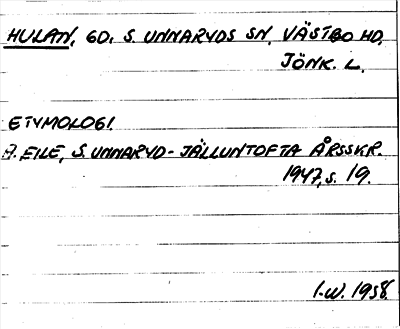 HULAN, GD. S. UNNARYDS SN, VÄSTBO HD,
JÖNK. L.
ETYMOLOGI.
A. EILE, S. UNNARYD - JÄLLUNTOFTA ÅRSSKR.
1947, s. 19.
I-W. 1958.